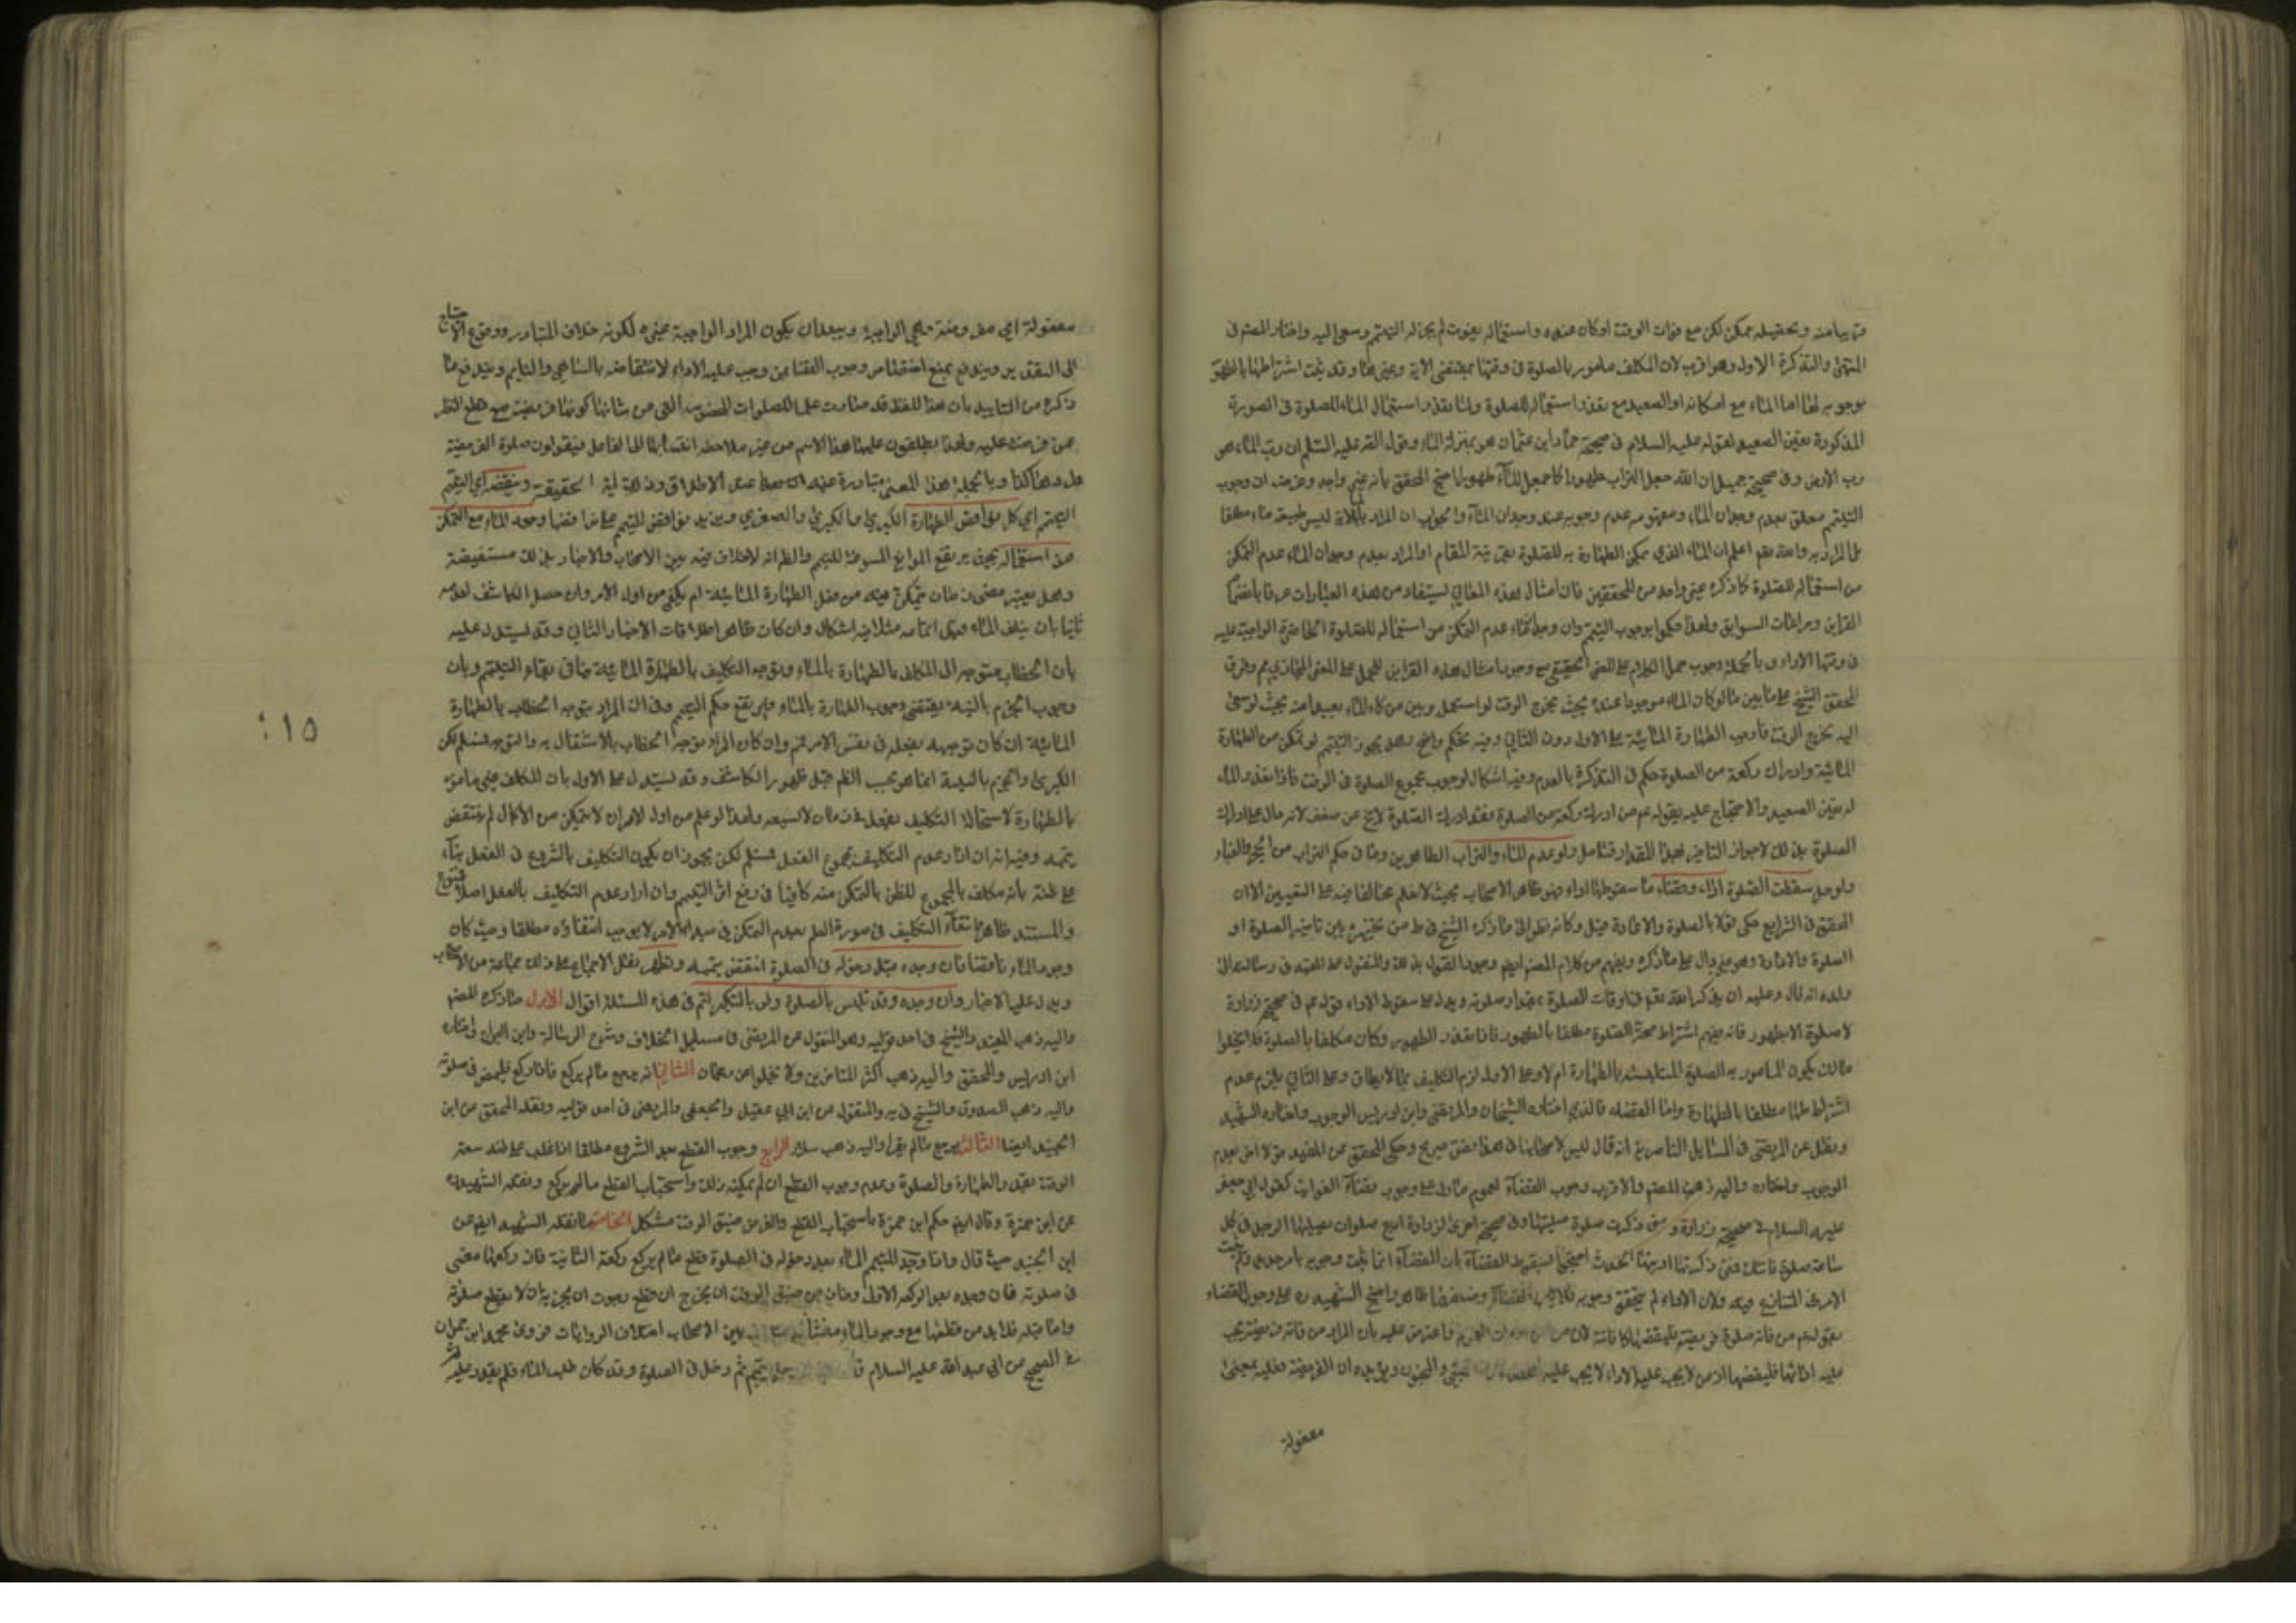 قريبا منه وتحصيله ممكن لكن مع فوات الوقت او كان عنده واستعماله يفوت لم يجز له التيمم وسعى اليه واختار المصنف في
المنتهى والتذكرة الاول وهو اقرب لان المكلف مامور بالصلوة في وقتها بمقتضى الاية وغيرها وقد ثبت اشتراطها بالطهور
بوجوبه لها اما الماء مع امكانه او الصعيد مع تعذر استعماله للصلوة ولما تعذر استعمال الماء للصلوة في الصورة
المذكورة تعين الصعيد لقوله عليه السلام في صحيحة حماد ابن عثمان هو بمنزلة الماء وقول الصادق عليه السلام ان رب الماء هو
رب الارض وفي صحيحة جميل ان الله جعل التراب طهورا كما جعل الماء طهورا احتج المحقق بانه غير واجد وعرفت ان وجوب
التيمم معلق بعدم وجدان الماء ومفهومه عدم وجوبه عند وجدان الماء والجواب ان المراد بالماء ليس طبيعة ماء مطلقا
بل المراد به والله يعلم ان الماء الذي يمكن الطهارة به للصلوة بقرينة المقام او المراد بعدم وجدان الماء عدم التمكن
من استعماله للصلوة كما ذكره غير واحد من المحققين فان امثال هذه المعاني يستفاد من هذه العبارات عرفا بانضمام
القراين ومراعات السوابق ولهذا حكموا بوجوب التيمم وان وجد الماء عدم التمكن من استعماله للصلوة الحاضرة الواجبة عليه
في وقتها الاداء وبالجملة وجوب حمل الكلام على المعنى الحقيقي مع وجود امثال هذه القراين للحمل على المعنى المجازي مم وفرق
المحقق الشيخ علي ما بين ما لو كان الماء موجودا عنده بحيث يخرج الوقت لو استعمل وبين من كان الماء بعيدا منه بحيث لو سعى
اليه لخرج الوقت فاوجب الطهارة المائية على الاول دون الثاني وفيه تحكم واضح وهل يجوز التيمم لو تمكن من الطهارة
المائية وادراك ركعة من الصلوة حكم في التذكرة بالعدم وفيه اشكال لوجوب مجموع الصلوة في الوقت فاذا تعذر الماء
له تعين الصعيد والاحتجاج عليه بقوله عم من ادرك ركعة من الصلوة فقد ادرك الصلوة لا يخ عن ضعف لانه دال على ادراك
الصلوة بذلك لا جواز التاخير لهذا المقدار فتامل ولو عدم الماء والتراب الطاهرين وما في حكم التراب من الحجر والغبار
والوحل سقطت الصلوة اداء وقضاء ما سقوطها اداء فهو ظاهر الاصحاب بحيث لا نعلم مخالفا فيه على التعيين الا ان
المحقق في الشرايع حكى قولا بالصلوة والاعادة قيل وكانه نظر الى ما ذكره الشيخ في ط من تخييره بين تاخير الصلوة او
الصلوة والاعادة وهو غير دال على ما ذكره ويفهم من كلام المصنف ايضا وجود القول بذلك والمنقول عن المفيد في رسالته الى
ولده انه قال وعليه ان يذكر الله تعم في اوقات الصلوة بمقدار صلوته ويدل على سقوط الاداء قوله عم في صحيحة زرارة
لا صلوة الا بطهور فانه يفهم اشتراط صحة الصلوة مطلقا بالطهور فاذا تعذر الطهور وكان مكلفا بالصلوة فلا يخلوا
ما ان يكون المامور به الصلوة المتلبسة بالطهارة ام لا وعلى الاول لزم التكليف بما لا يطاق وعلى الثاني يلزم عدم
اشتراطها مطلقا بالطهارة واما القضاء فالذي اختاره الشيخان والمرتضى وابن ادريس الوجوب واختاره الشهيد
ونقل عن المرتضى في المسايل الناصرية انه قال ليس لاصحابنا في هذا نص صريح وحكى المحقق عن المفيد قولا اخر بعدم
الوجوب واختاره واليه ذهب المصنف والاقرب وجوب القضاء لعموم ما دل على وجوب قضاء الفوائت كقول ابي جعفر
عليه السلام في صحيحة زرارة ومتى ذكرت صلوة صليتها وفي صحيحة اخرى لزرارة اربع صلوات يصليها الرجل في كل
ساعة صلوة فاتتك فمتى ذكرتها اديتها الحديث احتج لسقوط القضاء بان القضاء انما يثبت وجوبه بامر جديد ولم يثبت
الامر في المتنازع فيه ولان الاداء لم يتحقق وجوبه فلا يجب القضاء وضعفهما ظاهر واحتج الشهيد ره على وجوب القضاء
بقولهم من فاته صلوة فريضة فليقضها كما فاتته واعترض عليه بان المراد من فاته فريضة يجب
عليه ادائها فليقضها اذ من لا يجب عليه الاداء لا يجب عليه القضاء كالصبي والمجنون ويؤيده ان الفريضة فعيلة بمعنى
معفولة
معفولة اي مفروضة وهي الواجبة ويبعد ان يكون المراد الواجبة بغيره لكونه خلاف المتبادر ووقوع الاحتياج
الى التقدير ويندفع بمنع اختصاص وجوب القضا بمن وجب عليه الاداء لانتقاضه بالساهي والنايم ويندفع ما
ذكره من التاييد بان هذا اللفظ قد صارت علما للصلوات المخصوصة التي من شانها كونها فريضة مع قطع النظر
عمن فرضت عليه ولهذا يطلقون عليها هذا الاسم من غير ملاحظة انتسابها الى الفاعل فيقولون صلوة الفريضة
هل وهكذا وبالجملة هذا المعنى متبادرة عند الاطلاق وذلك اية الحقيقة وينقضه اي التيمم
التيمم اي كل نواقض الطهارة الكبرى بالكبرى والصغرى ويزيد نواقض التيمم على نواقضها وجود الماء مع التمكن
من استعماله بحيث يرتفع الموانع المسوغة للتيمم والظ انه لا خلاف فيه بين الاصحاب والاخبار بذلك مستفيضة
وهل يعتبر مضي زمان يتمكن فيه من فعل الطهارة المائية ام يكفي من اول الامر وان حصل الكاشف لعدمه
ثانيا بان يتلف الماء قبل اتمامه مثلا فيه اشكال وان كان ظاهر اطلاقات الاخبار الثاني وقد يستدل عليه
بان الخطاب متوجه الى المكلف بالطهارة بالماء وتوجه التكليف بالطهارة المائية ينافي بقاء التيمم وبان
وجوب الجزم بالنية يقتضي وجوب الطهارة بالماء فيرتفع حكم التيمم وفيه ان المراد بتوجه الخطاب بالطهارة
المائية ان كان توجيهه بفعله في نفس الامر فمم وان كان المراد توجه الخطاب بالاشتغال به والتوجه فمسلم لكن
الكبرى والجزم بالنية انما هو بحسب الظ قبل ظهور الكاشف وقد يستدل على الاول بان المكلف غير مامور
بالطهارة لاستحالة التكليف بفعل في زمان لا يسعه ولهذا لو علم من اول الامر ان لا يتمكن من الاكمال لم ينتقض
تيممه وفيه انه ان اراد عدم التكليف بمجموع الفعل فمسلم لكن يجوز ان يكون التكليف بالشروع في الفعل بناء
على ظنه بانه مكلف بالمجموع للظن بالتمكن منه كافيا في رفع اثر التيمم وان اراد عدم التكليف بالفعل اصلا فممنوع
والمستند ظاهر وانتفاء التكليف في صورة العلم بعدم التمكن في مبدء الامر لا يوجب انتفاؤه مطلقا وحيث كان
وجود الماء ناقضا فان وجده قبل دخوله في الصلوة انتقض تيممه ونقل الاجماع على ذلك جماعة من الاصحاب
ويدل عليه الاخبار وان وجده وقد تلبس بالصلوة ولو بالتكبير اتم في هذه المسئلة اقوال الاول ما ذكره المصنف
واليه ذهب المفيد والشيخ في احد قوليه وهو المنقول عن المرتضى في مسايل الخلاف وشرح الرسالة وابن البراج واختاره
ابن ادريس والمحقق واليه ذهب اكثر المتاخرين ولا يخلوا عن رجحان الثاني انه يرجع ما لم يركع فاذا ركع فليمض في صلوته
واليه ذهب الصدوق والشيخ في يه والمنقول عن ابن ابي عقيل والجعفي والمرتضى في احد قوليه ونقله المحقق عن ابن
الجنيد ايضا الثالث يرجع ما لم يقرا واليه ذهب سلار الرابع وجوب القطع بعد الشروع مطلقا اذا غلب على ظنه سعة
الوقت بقدر الطهارة والصلوة وعدم وجوب القطع ان لم يمكنه ذلك واستحباب القطع ما لم يركع ونقله الشهيد ره
عن ابن حمزة وقال ايضا حكم ابن حمزة باستحباب القطع والفرض ضيق الوقت مشكل الخامس ما نقله الشهيد ايضا عن
ابن الجنيد حيث قال واذا وجد المتيمم الماء بعد دخوله في الصلوة قطع ما لم يركع ركعة الثانية فان ركعها مضى
في صلوته فان وجده بعد الركعة الاولى وخاف من ضيق الوقت ان يخرج ان قطع رجوت ان يجزيه ان لا يقطع صلوته
واما قبله فلا بد من قطعها مع وجود الماء ومنشا بين الاصحاب اختلاف الروايات فروى محمد ابن حمران
في الصحيح عن ابي عبد الله عليه السلام رجل تيمم ثم دخل في الصلوة وقد كان طلب الماء فلم يقدر عليه
٥١